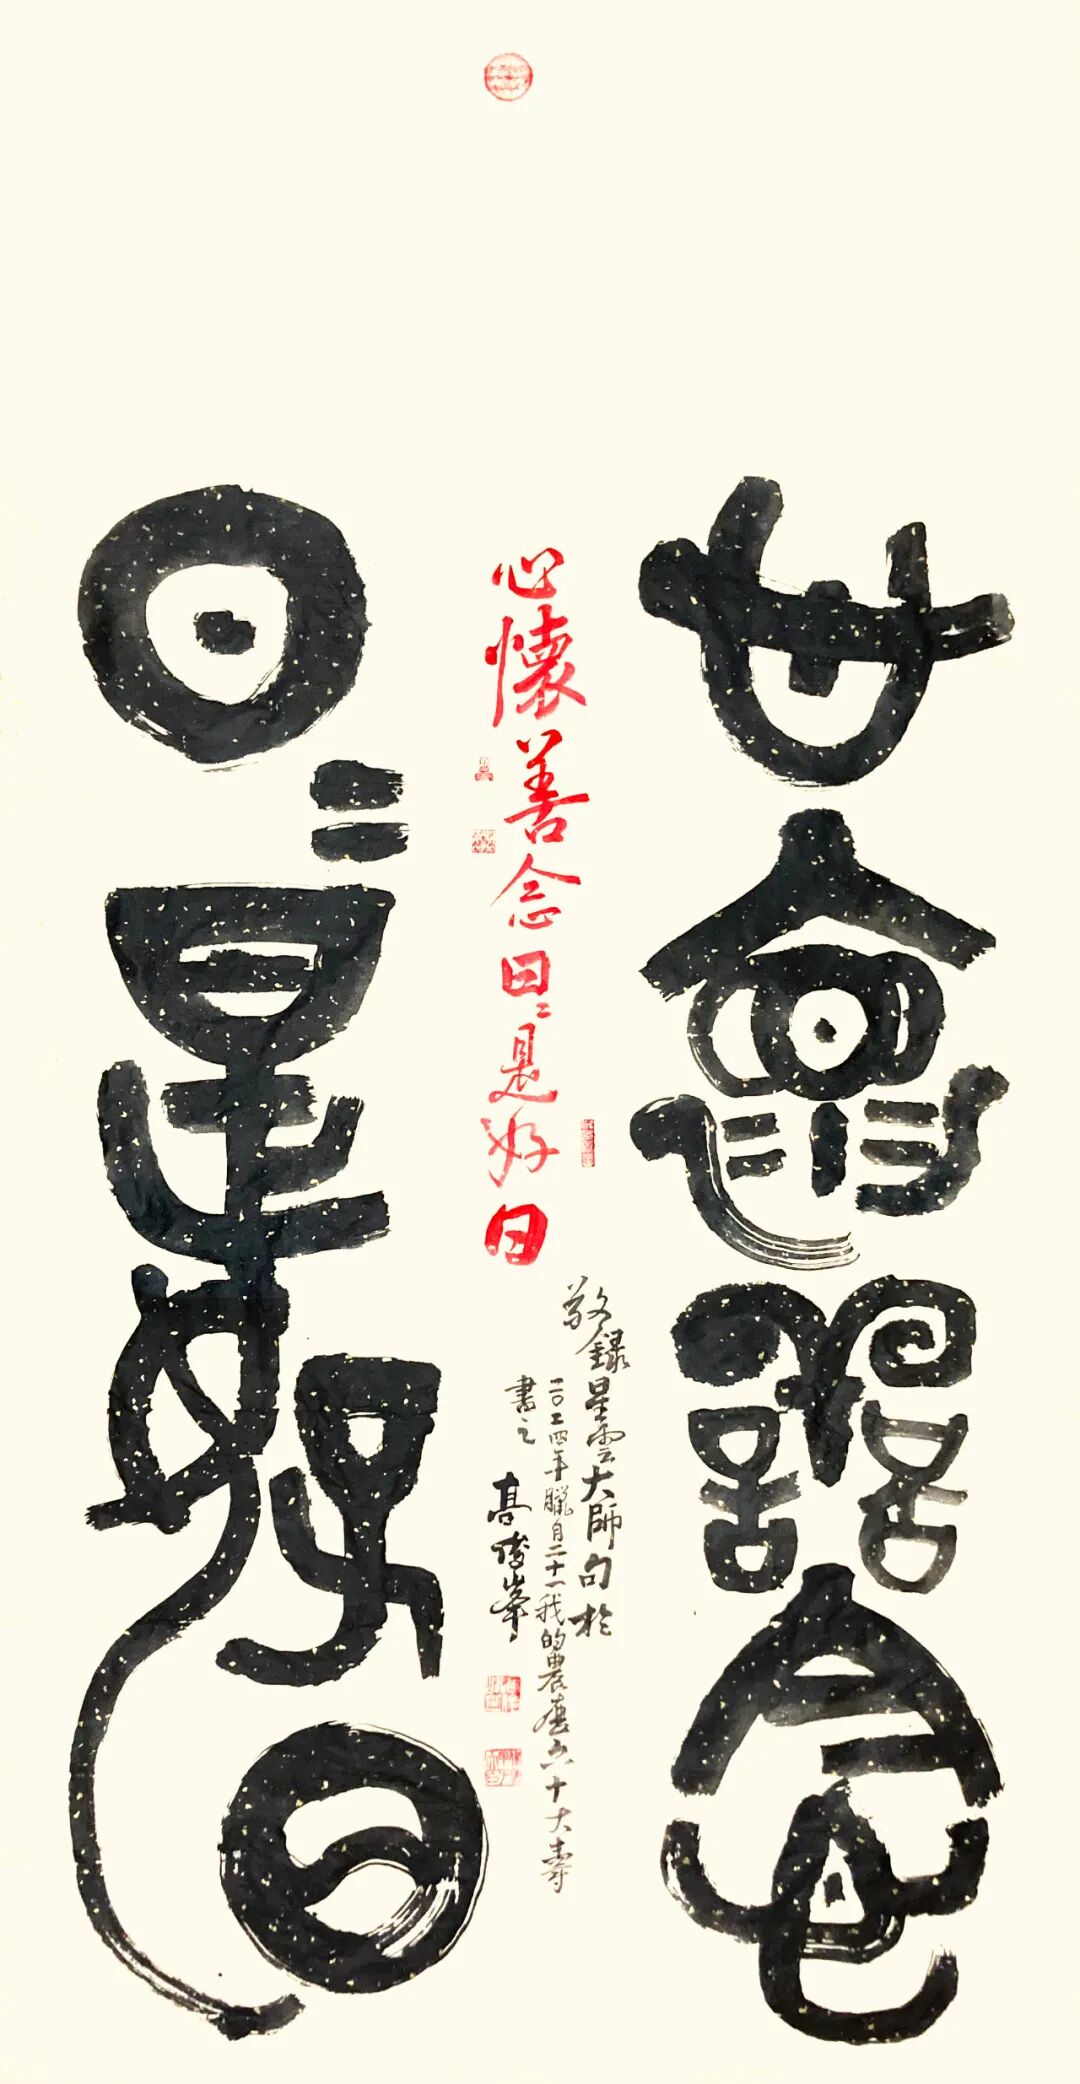 心懷善念
敬錄星雲大師句於
二〇二四年臘月二十一我的農歷六十大壽
書之
心懷善念日〻是好日
高峻峯
日〻是好日